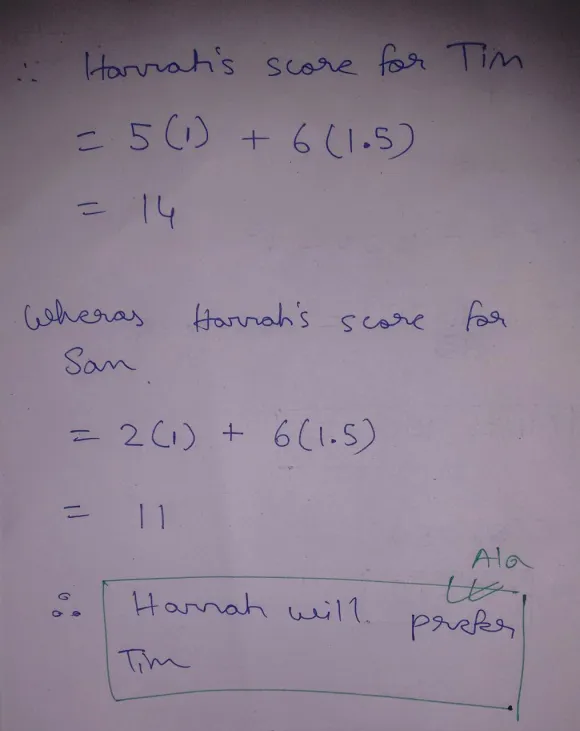 ∴ Harrah's score for Tim
= 5(1) + 6(1.5)
= 14
Wheras Harrah's score for
San
= 2(1) + 6(1.5)
= 11
Ala
∴ Harrah will prefer
Tim